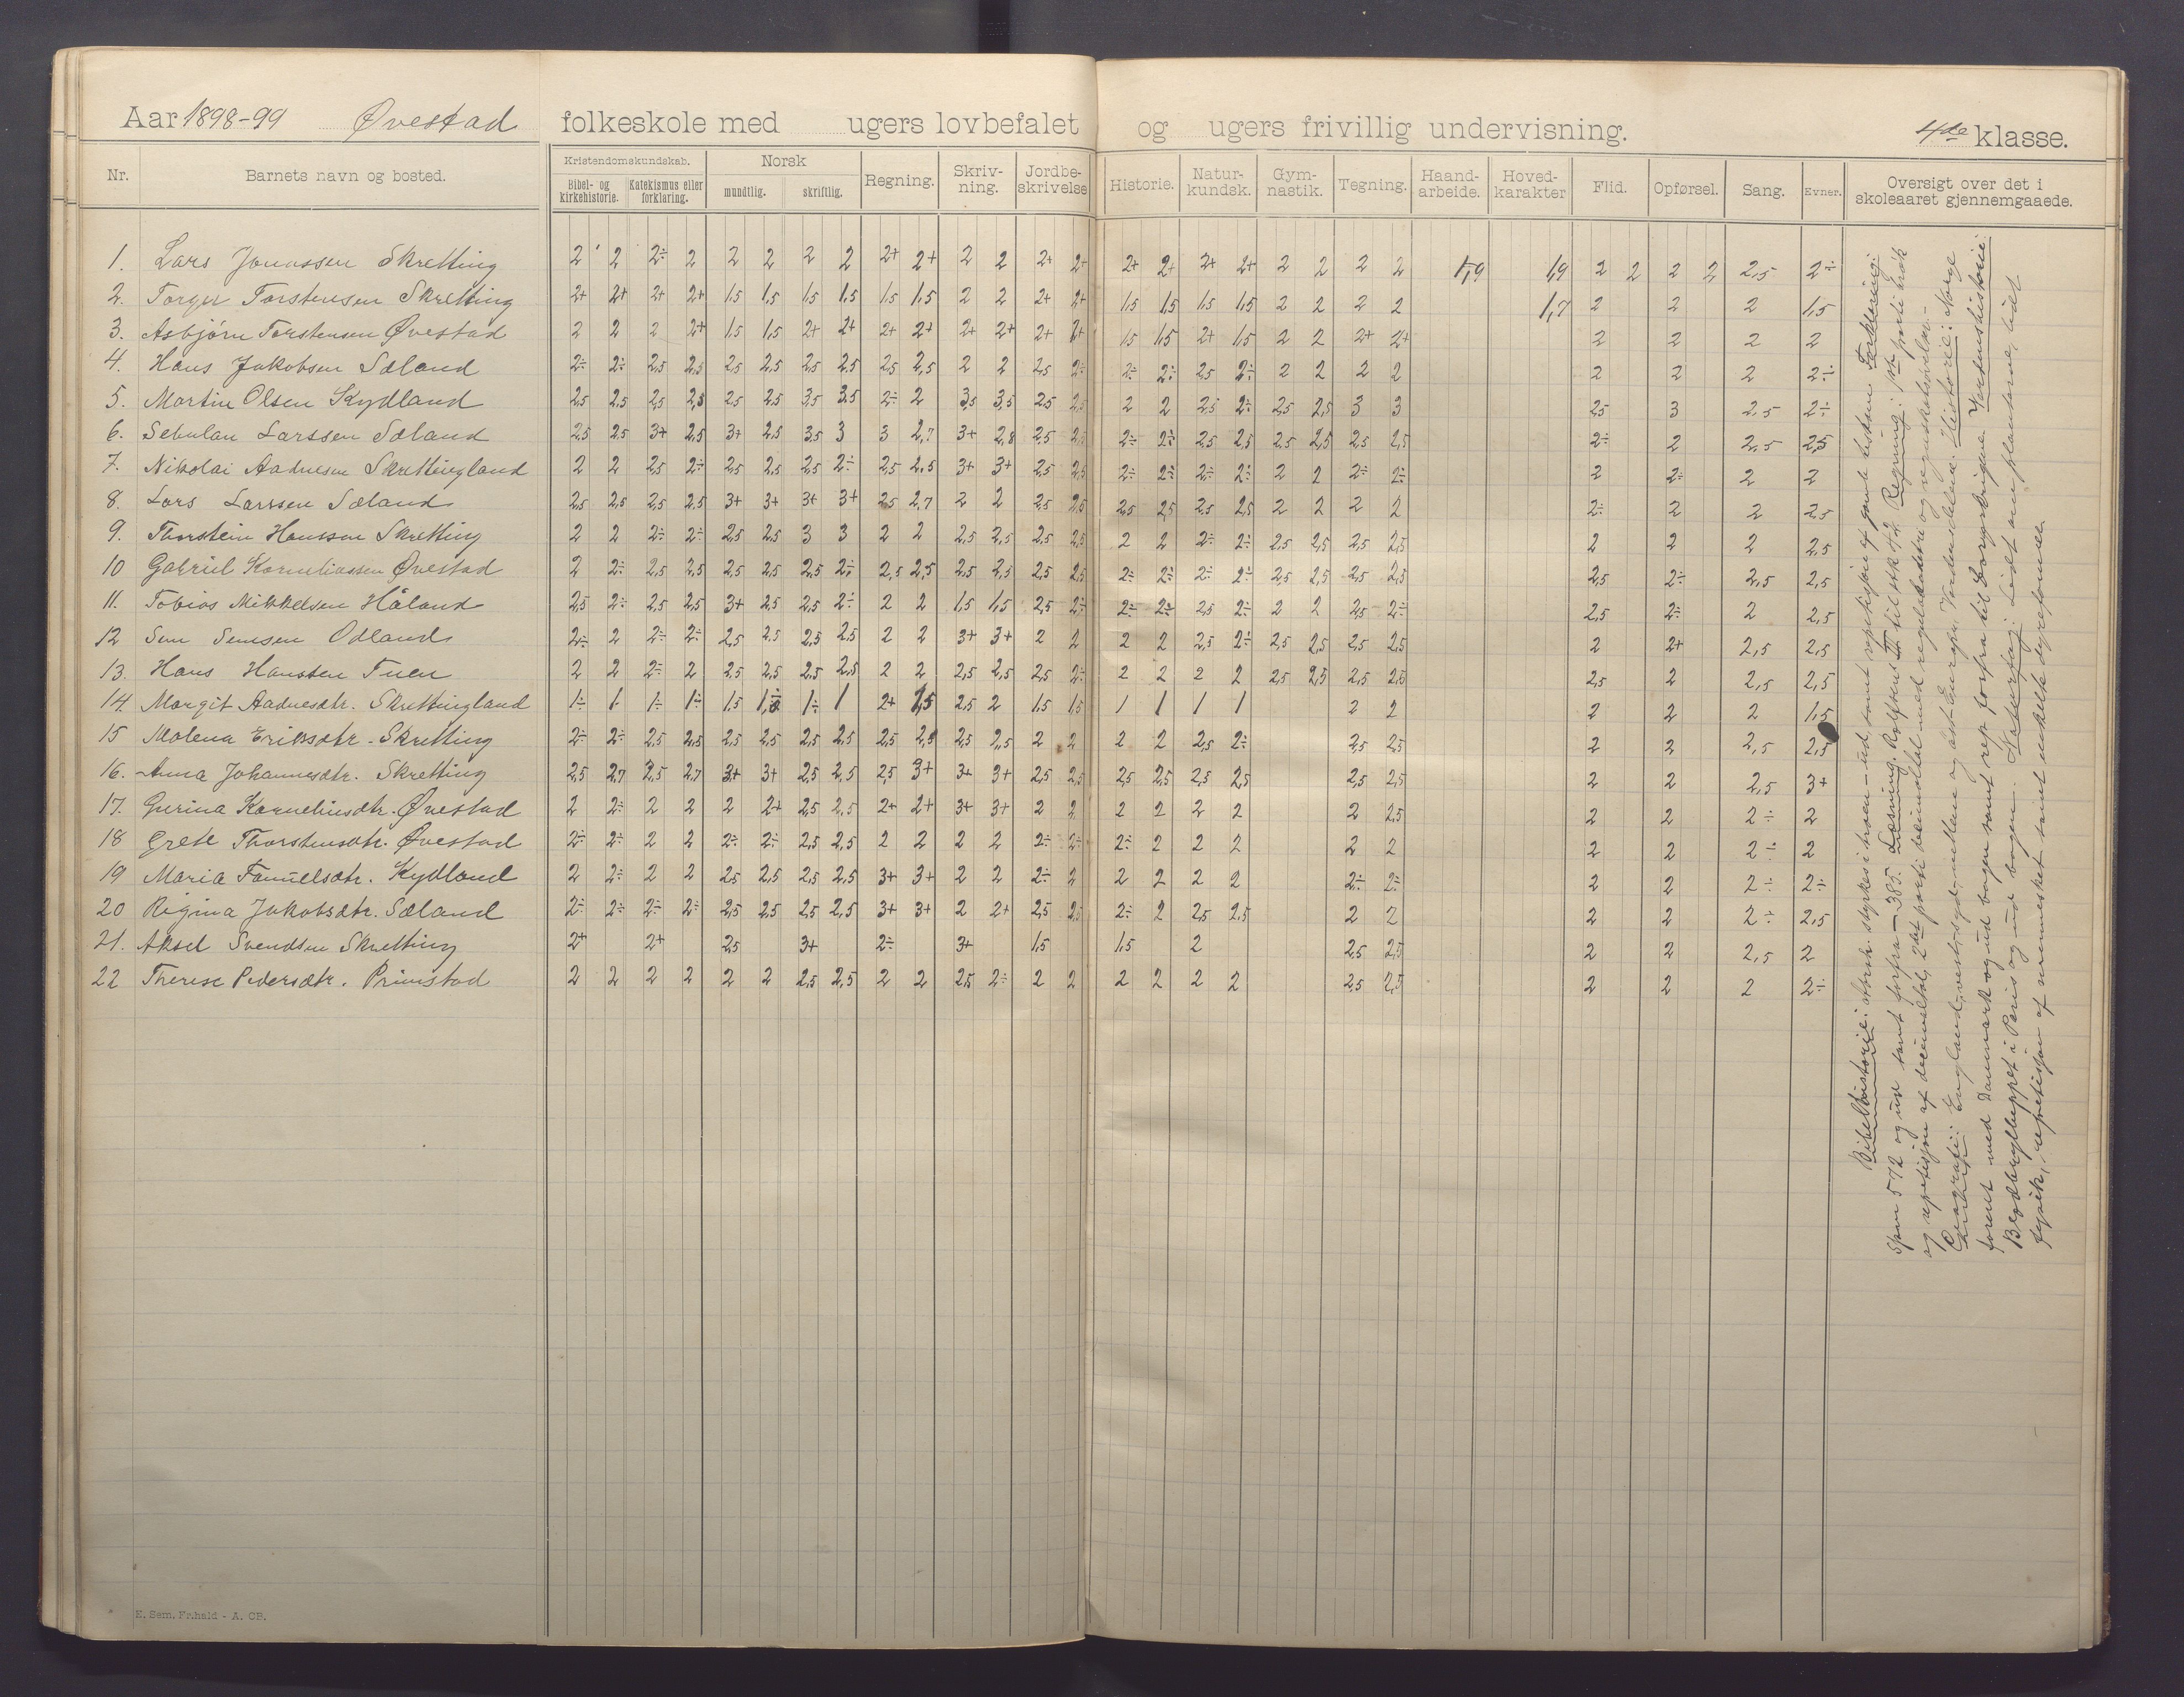 Aar 1898-99 Øvestad folkeskole med ugers lovbefalet og ugers frivillig undervisning. 4de klasse.
Nr. Barnets navn og bosted. Kristendomskundskab. Bibel- og kirkehistorie. Katekismus eller forklaring. Norsk mundtlig. skriftlig. Regning. Skriv-ning. Jordbe-skrivelse Historie. Natur-kundsk. Gym-nastik. Tegning. Haand-arbeide. Hoved-karakter Flid. Opførsel. Sang. Evner. Oversigt over det i skoleaaret gjennemgaaede.
1. Lars Jonassen Skretting 2 2 2÷ 2 2 2 2 2 2+ 2+ 2 2 2+ 2+ 2+ 2+ 2+ 2+ 2 2 2 2 1,9 1,9 2 2 2 2 2,5 2÷
2. Torger Torstensen Skretting 2+ 2+ 2+ 2+ 1,5 1,5 1,5 1,5 1,5 1,5 2 2 2+ 2+ 1,5 1,5 1,5 1,5 2 2 2 2 1,7 2 2 2 1,5
3. Asbjørn Torstensen Øvestad 2 2 2 2+ 1,5 1,5 2+ 2+ 2+ 2+ 2+ 2+ 2+ 2+ 1,5 1,5 2+ 1,5 2 2 2+ 2+ 2 2 2 2
4. Hans Jakobsen Sæland 2÷ 2÷ 2,5 2,5 2,5 2,5 2,5 2,5 2,5 2,5 2 2 2,5 2÷ 2÷ 2÷ 2,5 2÷ 2 2 2 2 2 2 2 2÷
5. Martin Olsen Kydland 2,5 2,5 2,5 2,5 2,5 2,5 3,5 3,5 2÷ 2 3,5 3,5 2,5 2,5 2 2 2,5 2÷ 2,5 2,5 3 3 2,5 3 2,5 2÷
6. Sebulan Larssen Sæland 2,5 2,5 3+ 2,5 3+ 2,5 3,5 3 3 2,7 3+ 2,8 2,5 2,5 2÷ 2÷ 2,5 2,5 2,5 2,5 2,5 2,5 2÷ 2 2,5 2,5
7. Nikolai Aadnesen Skrettingland 2 2 2,5 2÷ 2,5 2,5 2,5 2÷ 2,5 2,5 3+ 3+ 2,5 2,5 2÷ 2÷ 2÷ 2÷ 2 2 2÷ 2÷ 2 2÷ 2 2
8. Lars Larssen Sæland 2,5 2,5 2,5 2,5 3+ 3+ 3+ 3+ 2,5 2,7 2 2 2,5 2,5 2,5 2,5 2,5 2,5 2 2 2 2 2÷ 2 2 2,5
9. Thorstein Hanssen Skretting 2 2 2÷ 2÷ 2,5 2,5 3 3 2 2 2,5 2,5 2,5 2,5 2 2 2÷ 2÷ 2,5 2,5 2,5 2,5 2 2 2 2,5
10 Gabriel Korneliussen Øvestad 2 2÷ 2,5 2,5 2,5 2,5 2,5 2÷ 2,5 2,5 2,5 2,5 2,5 2,5 2÷ 2÷ 2÷ 2÷ 2,5 2,5 2,5 2,5 2,5 2÷ 2,5 2,5
11. Tobias Mikkelsen Håland 2,5 2÷ 2,5 2,5 3+ 2,5 2,5 2÷ 2 2 1,5 1,5 2,5 2÷ 2÷ 2÷ 2,5 2÷ 2 2 2,5 2÷ 2,5 2÷ 2 2,5
12 Sem Semsen Odland 2÷ 2 2÷ 2÷ 2,5 2,5 2,5 2,5 2 2 3+ 3+ 2 2 2 2 2,5 2÷ 2,5 2,5 2,5 2,5 2 2+ 2,5 2,5
13. Hans Hansten Tuen 2 2 2÷ 2 2,5 2,5 2,5 2,5 2 2 2,5 2,5 2,5 2÷ 2 2 2 2 2,5 2,5 2,5 2,5 2,5 2 2,5 2,5
14 Margit Aadnesdtr. Skrettingland 1÷ 1 1÷ 1÷ 1,5 1÷ 1÷ 1 2+ 1,5 2,5 2 1,5 1,5 1 1 1 1 2 2 2 2 2 1,5
15 Malena Eriksdtr. Skretting 2÷ 2÷ 2,5 2,5 2,5 2,5 2,5 2,5 2,5 2,5 2,5 2,5 2 2 2 2 2,5 2÷ 2,5 2,5 2 2 2,5 2,5
16. Anna Johannesdtr. Skretting 2,5 2,7 2,5 2,7 3+ 3+ 2,5 2,5 2,5 3+ 3+ 3+ 2,5 2,5 2,5 2,5 2,5 2,5 2,5 2,5 2 2 2,5 3+
17. Gurina Korneliusdtr. Øvestad 2 2÷ 2 2 2 2+ 2,5 2,5 2+ 2+ 3+ 3+ 2 2 2 2 2 2 2 2,5 2 2 2÷ 2
18 Grete Thorstensdtr. Øvestad 2÷ 2÷ 2 2 2÷ 2÷ 2,5 2,5 2 2 2 2 2÷ 2÷ 2÷ 2 2 2 2 2 2 2 2÷ 2
19 Maria Samuelsdtr. Kydland 2 2÷ 2 2 2,5 2,5 2,5 2,5 3+ 3+ 2 2 2÷ 2 2 2 2 2 2÷ 2÷ 2 2 2÷ 2÷
20 Regina Jakobsdtr. Sæland 2÷ 2÷ 2÷ 2÷ 2,5 2,5 2,5 2,5 3+ 3+ 2 2+ 2,5 2,5 2÷ 2 2,5 2,5 2 2 2 2 2÷ 2,5
21. Aksel Svendsen Skretting 2+ 2+ 2,5 3+ 2÷ 3+ 1,5 1,5 2 2,5 2,5 2 2 2,5 2
22 Therese Pedersdtr. Primstad 2 2 2 2 2 2 2,5 2,5 2 2 2,5 2÷ 2 2 2 2 2 2 2,5 2,5 2 2 2 2÷
Bibelhistorie: styrkes i troen - ud, samt repitisjon af gamle testam. Forklaring:
Spm 572 og ud samt forfra - 385. Læsning. Rolfsens III til stk 42. Regning: 1ste parti brøk
og repitisjon af decimaltal, 2det parti
Geografi: England, vest, syd, mellem og øst Europa, Verdensdelene. Historie: Norge
forenet med Danmark og ud bogen samt rep forfra til Borgerkrigene. Verdenshistorie:
i Paris og ud bogen. Naturfag: Lidt om planterne, lidt
fysik, repetisjon af mennesket samt enkelte dyreformer
E. Sem. Fr.hald - A. CB.